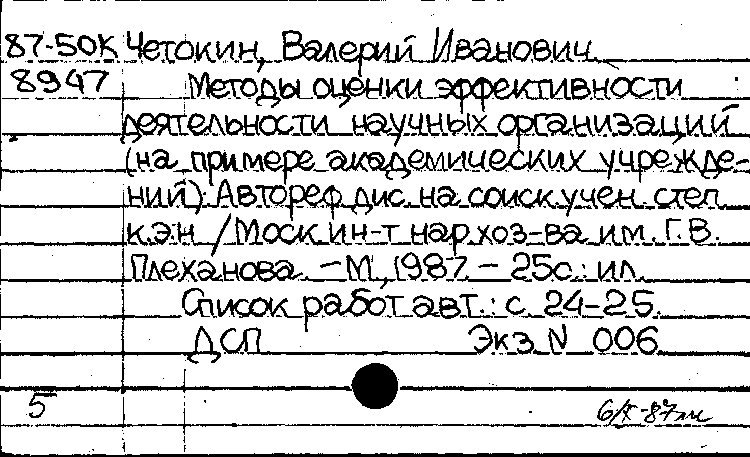 87-50К Четокин, Валерий Иванович.
8947 Методы оценки эффективности
деятельности научных организаций
(на примере академических учрежде-
ний): Автореф. дис. на соиск. учен. степ.
к.э.н. / Моск. ин-т нар. хоз-ва им. Г.В.
Плеханова. – М., 1987. – 25с.: ил.
Список работ авт.: с. 24-25.
ДСП Экз. N 006
5